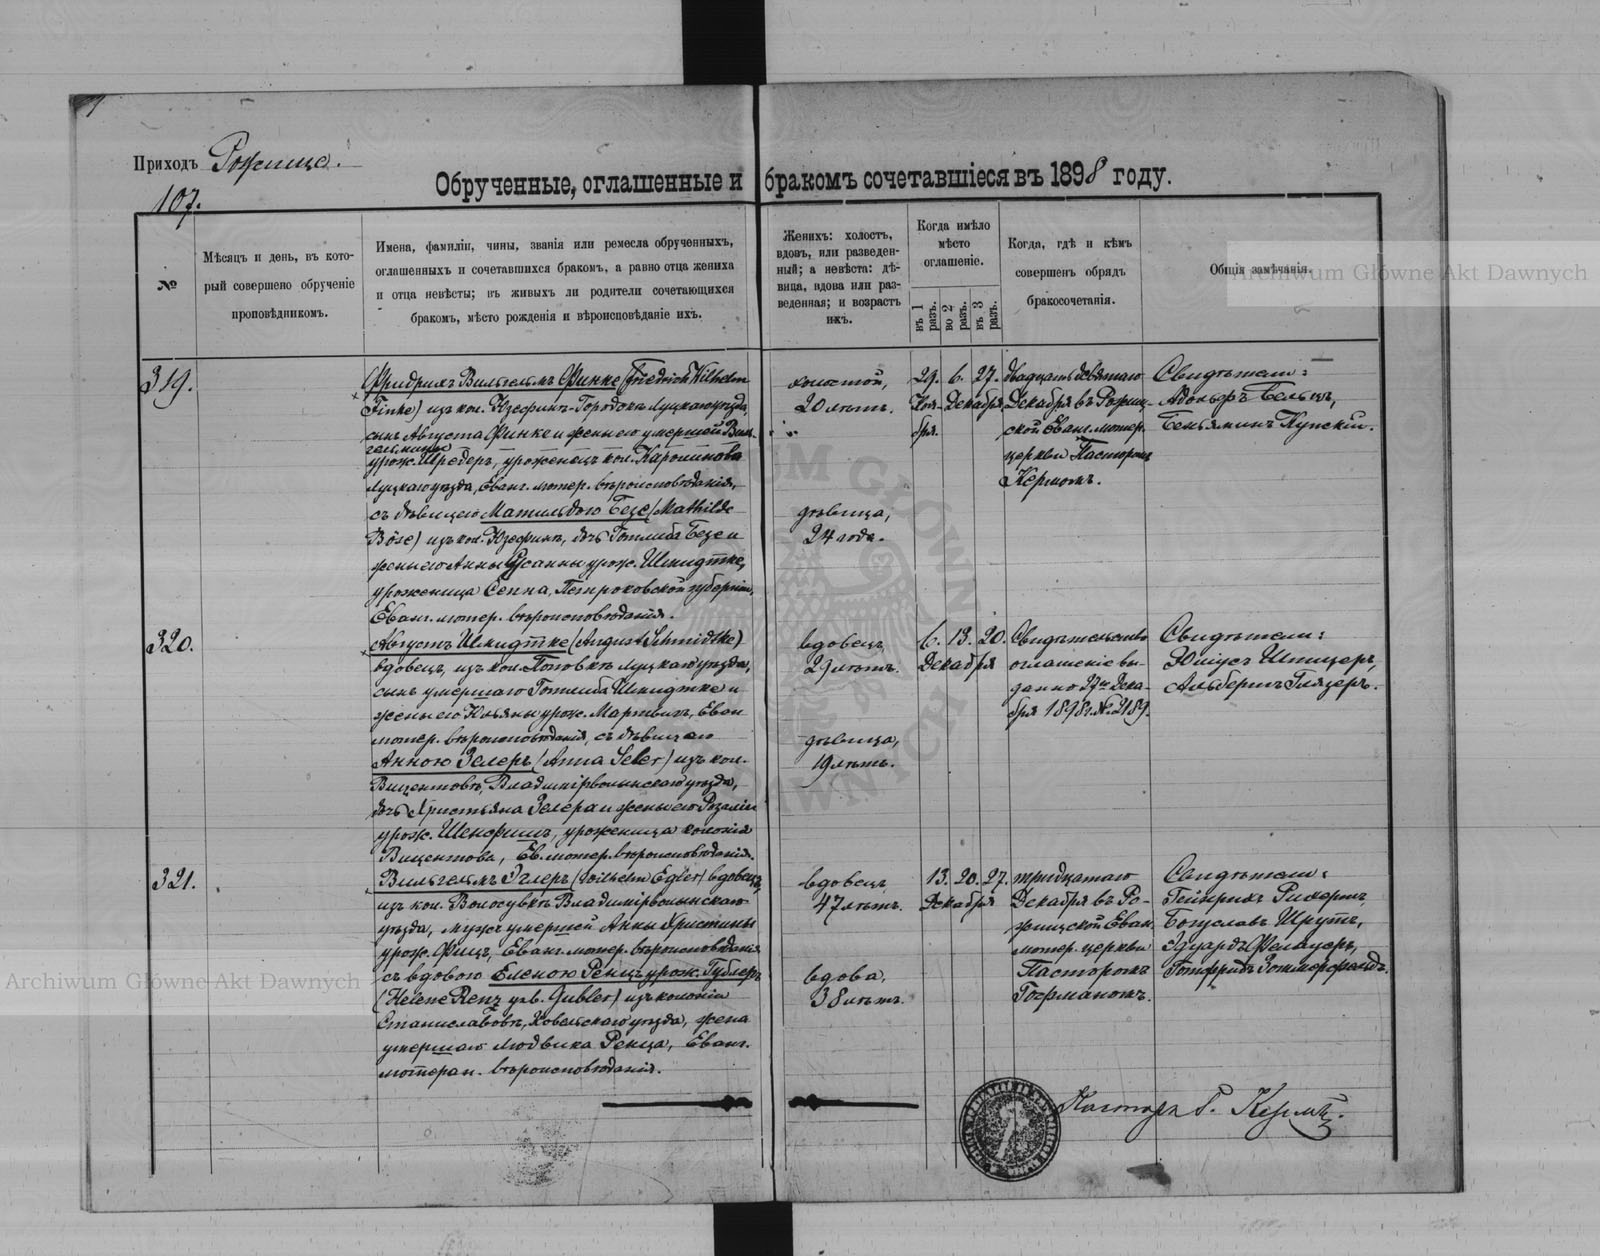 Приходъ Рожище.
107.
Обрученные, оглашенные и бракомъ сочетавшіеся въ 1898 году.
№
Мѣсяцъ и день, въ кото-
рый совершено обрученіе
проповѣдникомъ.
Имена, фамиліи, чины, званія или ремесла обрученныхъ,
оглашенныхъ и сочетавшихся бракомъ, а равно отца жениха
и отца невѣсты; въ живыхъ ли родители сочетающихся
бракомъ, мѣсто рожденія и вѣроисповѣданіе ихъ.
Женихъ: холостъ,
вдовъ, или разведен-
ный; а невѣста: дѣ-
вица, вдова или раз-
веденная; и возрастъ
ихъ.
Когда имѣло
мѣсто
оглашеніе.
въ 1 разъ.
во 2 разъ.
въ 3 разъ.
Когда, гдѣ и кѣмъ
совершенъ обрядъ
бракосочетанія.
Общія замѣчанія.
Archiwum Główne Akt Dawnych
319.
Фридрихъ Вильгельмъ Финке (Friedrich Wilhelm
Finke) изъ кол. Юзефинъ-Городокъ Луцкаго уѣзда,
сынъ Августа Финке и жены его умершей Виль-
гельмины
урож. Шредеръ, уроженецъ кол. Каролинова
Луцкаго уѣзда, Еванг. лютер. вѣроисповѣданія,
съ дѣвицею Матильдою Безе (Mathilde
Böse) изъ кол. Юзефинъ, дочь Готлиба Безе и
жены его Анны Сусанны урож. Шмидтке,
уроженица Сепна, Петроковской губерніи,
Еванг. лютер. вѣроисповѣданія.
холостой,
20 лѣтъ.
дѣвица,
24 года.
29. 6. 27.
Ноя- Декабря
бря.
двадцать девятаго
Декабря въ Рожищ-
ской Еванг. лютер.
церкви Пасторомъ
Кермомъ.
Свидѣтели:
Адольфъ Бельцъ,
Беньяминъ Купскій.
320.
Августъ Шмидтке (August Schmidtke)
вдовецъ, изъ кол. Поповкъ Луцкаго уѣзда,
сынъ умершаго Готлиба Шмидтке и
жены его Юльяны урож. Мартвигъ, Еван.
лютер. вѣроисповѣданія, съ дѣвицею
Анною Зелеръ (Anna Seler) изъ кол.
Вицентовъ, Владимірволынскаго уѣзда,
дочь Христьяна Зелера и жены его Розаліи
урож. Шенфишъ, уроженица колоніи
Вицентова, Ев. лютер. вѣроисповѣданія.
вдовецъ,
29 лѣтъ.
дѣвица,
19 лѣтъ.
6. 13. 20.
Декабря
Свидѣтельство
оглашеніе вы-
дано 27го Дека-
бря 1898г. № 2189.
Свидѣтели:
Юліусъ Шпицеръ,
Альбертъ Глязеръ.
321.
Вильгельмъ Эглеръ (Wilhelm Egler) вдовецъ,
изъ кол. Волосувкъ Владимірволынскаго
уѣзда, мужъ умершей Анны Христины
урож. Фицъ, Еванг. лютер. вѣроисповѣданія
съ вдовою Еленою Ренцъ урож. Гублеръ
(Helene Renz geb. Gubler) изъ колоніи
Станиславовъ, Ковельскаго уѣзда, жена
умершаго Людвика Ренца, Еванг.
лютеран. вѣроисповѣданія.
вдовецъ,
47 лѣтъ.
вдова,
38 лѣтъ.
13. 20. 27.
Декабря
тридцатаго
Декабря въ Ро-
жищской Еван.
лютер. церкви
Пасторомъ
Гофманомъ.
Свидѣтели:
Гейнрихъ Рихертъ,
Богуславъ Шрутъ,
Эдуардъ Фелауеръ,
Готфридъ Зоммерфельдъ.
Archiwum Główne Akt Dawnych
Пасторъ Кермъ.